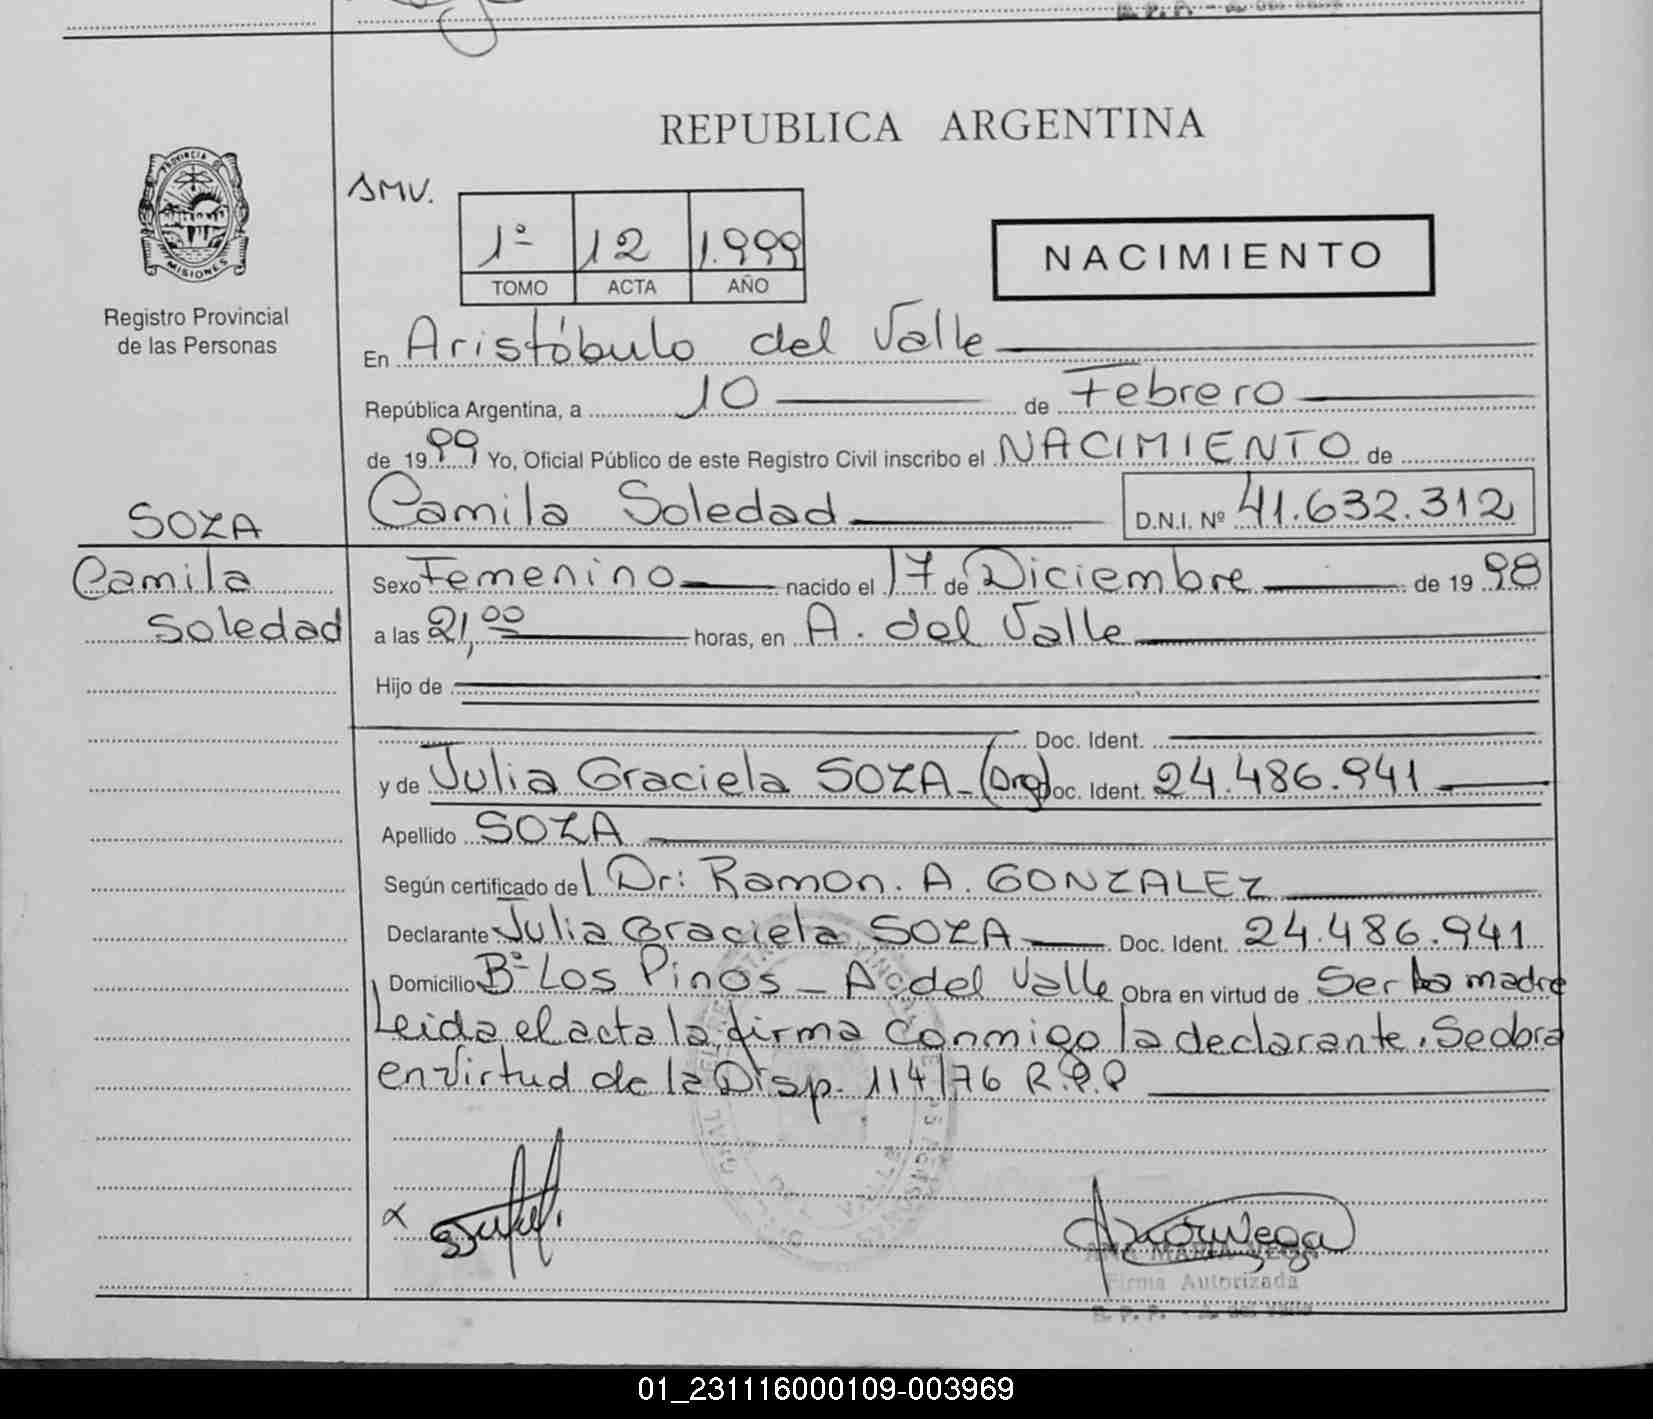 REPUBLICA ARGENTINA
PROVINCIA DE
MISIONES
Registro Provincial
de las Personas
SMV.
1º 12 1.999
TOMO ACTA AÑO
NACIMIENTO
En Aristóbulo del Valle
República Argentina, a 10 de Febrero
de 1999 Yo, Oficial Público de este Registro Civil inscribo el NACIMIENTO de
SOZA
Camila Soledad D.N.I. Nº 41.632.312
Camila
Soledad
Sexo Femenino nacido el 17 de Diciembre de 1998
a las 21,00 horas, en A. del Valle
Hijo de
Doc. Ident.
y de Julia Graciela SOZA - (Arg) Doc. Ident. 24.486.941
Apellido SOZA
Según certificado del Dr: Ramon. A. GONZALEZ
Declarante Julia Graciela SOZA Doc. Ident. 24.486.941
Domicilio Bº Los Pinos - A. del Valle Obra en virtud de Ser la madre
Leida el acta la firma conmigo la declarante. Se obra
en virtud de la Disp. 114/76 R.P.P
ANA MARIA VEGA
Firma Autorizada
R. P. P. - A. del Valle
01_231116000109-003969